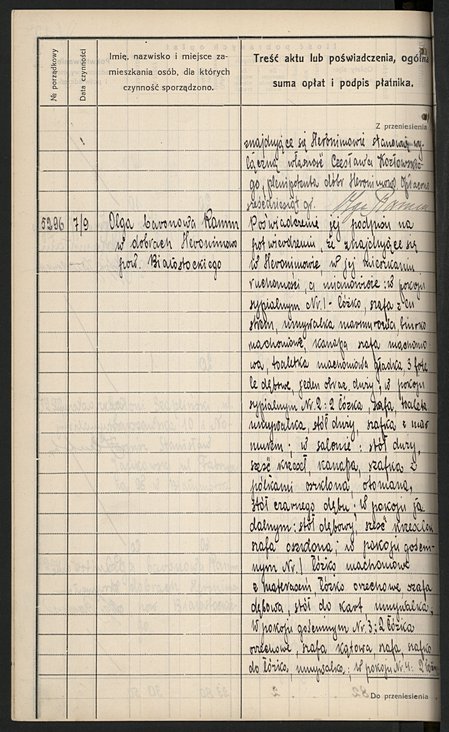 № porządkowy
Data czynności
Imię, nazwisko i miejsce za-
mieszkania osób, dla których
czynność sporządzono.
Treść aktu lub poświadczenia, ogólna
suma opłat i podpis płatnika.
Z przeniesienia
znajdujące się Heronimowie stanowią wy-
łączną własność Czesława Kozłowskie-
go, plenipotenta dóbr Heronimowo Opłacono
sześćdziesiąt gr. Olga Ramm
5296 7/9 Olga baronowa Ramm
w dobrach Heronimowo
pow. Białostockiego
Poświadczenie jej podpisu na
potwierdzeniu że znajdujące się
w Heronimowie w jej mieszkaniu
ruchomości, a mianowicie: w pokoju
sypialnym Nr. 1 - łóżko, szafa z lu
strem, umywalka marmurowa, biurko
machoniowe, kanapa szafa machonio
wa, toaletka machoniowa gładka, 3 fote
le dębowe, jeden obraz duży; w pokoju
sypialnym Nr. 2: 2 łóżka, szafa, toaleta
umywalka, stół duży, szafka z mar
murem; w salonie: stół duży,
sześć krzeseł, kanapa, szafka z
półkami oszklona, otomana,
stół czarnego dębu; w pokoju ja
dalnym: stół dębowy, sześć krzeseł
szafa oszklona; w pokoju gościn-
nym Nr. 1 łóżko machoniowe
z materacem, łóżko orzechowe szafa
dębowa, stół do kart umywalka
w pokoju gościnnym Nr. 3: 2 łóżka
orzechowe, szafa kątowa szafa, szafka
do łóżka, umywalka; w pokoju № 4: 2 łóżka
Do przeniesienia